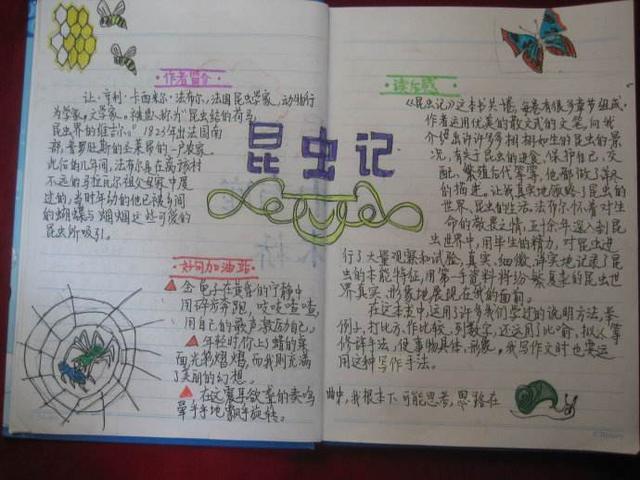 作者简介
让·亨利·卡西米尔·法布尔，法国昆虫学家，动物行
为学家，文学家。被世人称为“昆虫
昆虫界的维吉尔。”1823年出生法国南
部，普罗旺斯的圣莱昂的一户农家。
此后的几年间，法布尔是在离该村
不远的马拉瓦尔祖父母家中度
过的，当时年幼的他已被乡间
的蝴蝶与蝈蝈这些可爱的
昆虫所吸引。
昆虫记
好句加油站
用碎步奔跑，吱吱喳喳，
用自己的歌声激励自己。
年轻时价上蜡的菜
面光彩熠熠，而我则充满
了美丽的幻想。
在这震耳欲聋的轰鸣
读后感
《昆虫记》这本书共十卷，每卷有很多章节组成，
作者运用优美的散文式的文笔，向我
介绍出许许多多栩栩如生的昆虫的景
况，有关于昆虫的进食、保护自己、交
配、繁殖后代等等，他都做了详尽
的描述。让我真实地领略了昆虫的
世界、昆虫的生活。法布尔怀着对生
命的敬畏之情，三十余年深入到昆
虫世界中，用毕生的精力，对昆虫进
行了大量观察和试验，真实、细微、详实地记录了昆
虫的本能特征，用第一手资料将纷繁复杂的昆虫世
界真实、形象地展现在我的面前。
在这本书中，运用了许多我们学过的说明方法，举
例子，打比方，作比较，列数字，还运用了比喻，拟人等
修辞手法，使事物具体、形象，我写作文时也要运
用这种写作手法。
曲中，我根本不可能思考，思路在